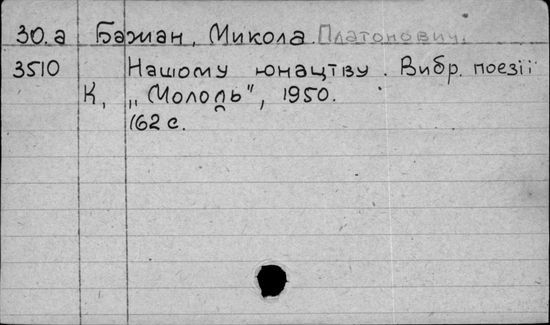 30.а Бажан, Микола Платонович.
3510 Нашому юнацтву. Вибр. поезії
К, „Молодь", 1950.
162 с.